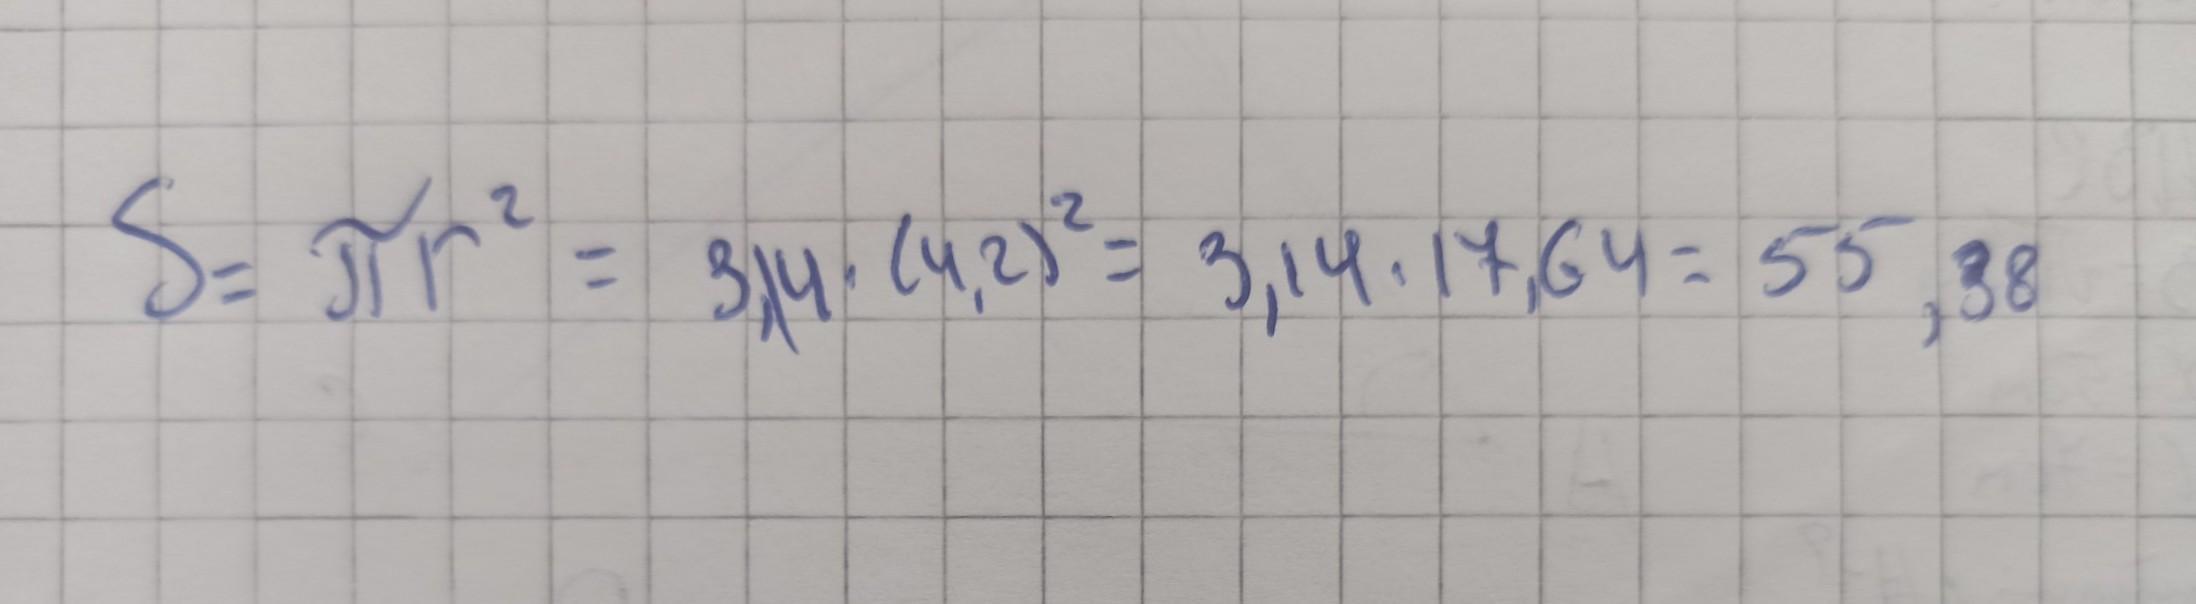 S = πr² = 3,14 · (4,2)² = 3,14 · 17,64 = 55,38